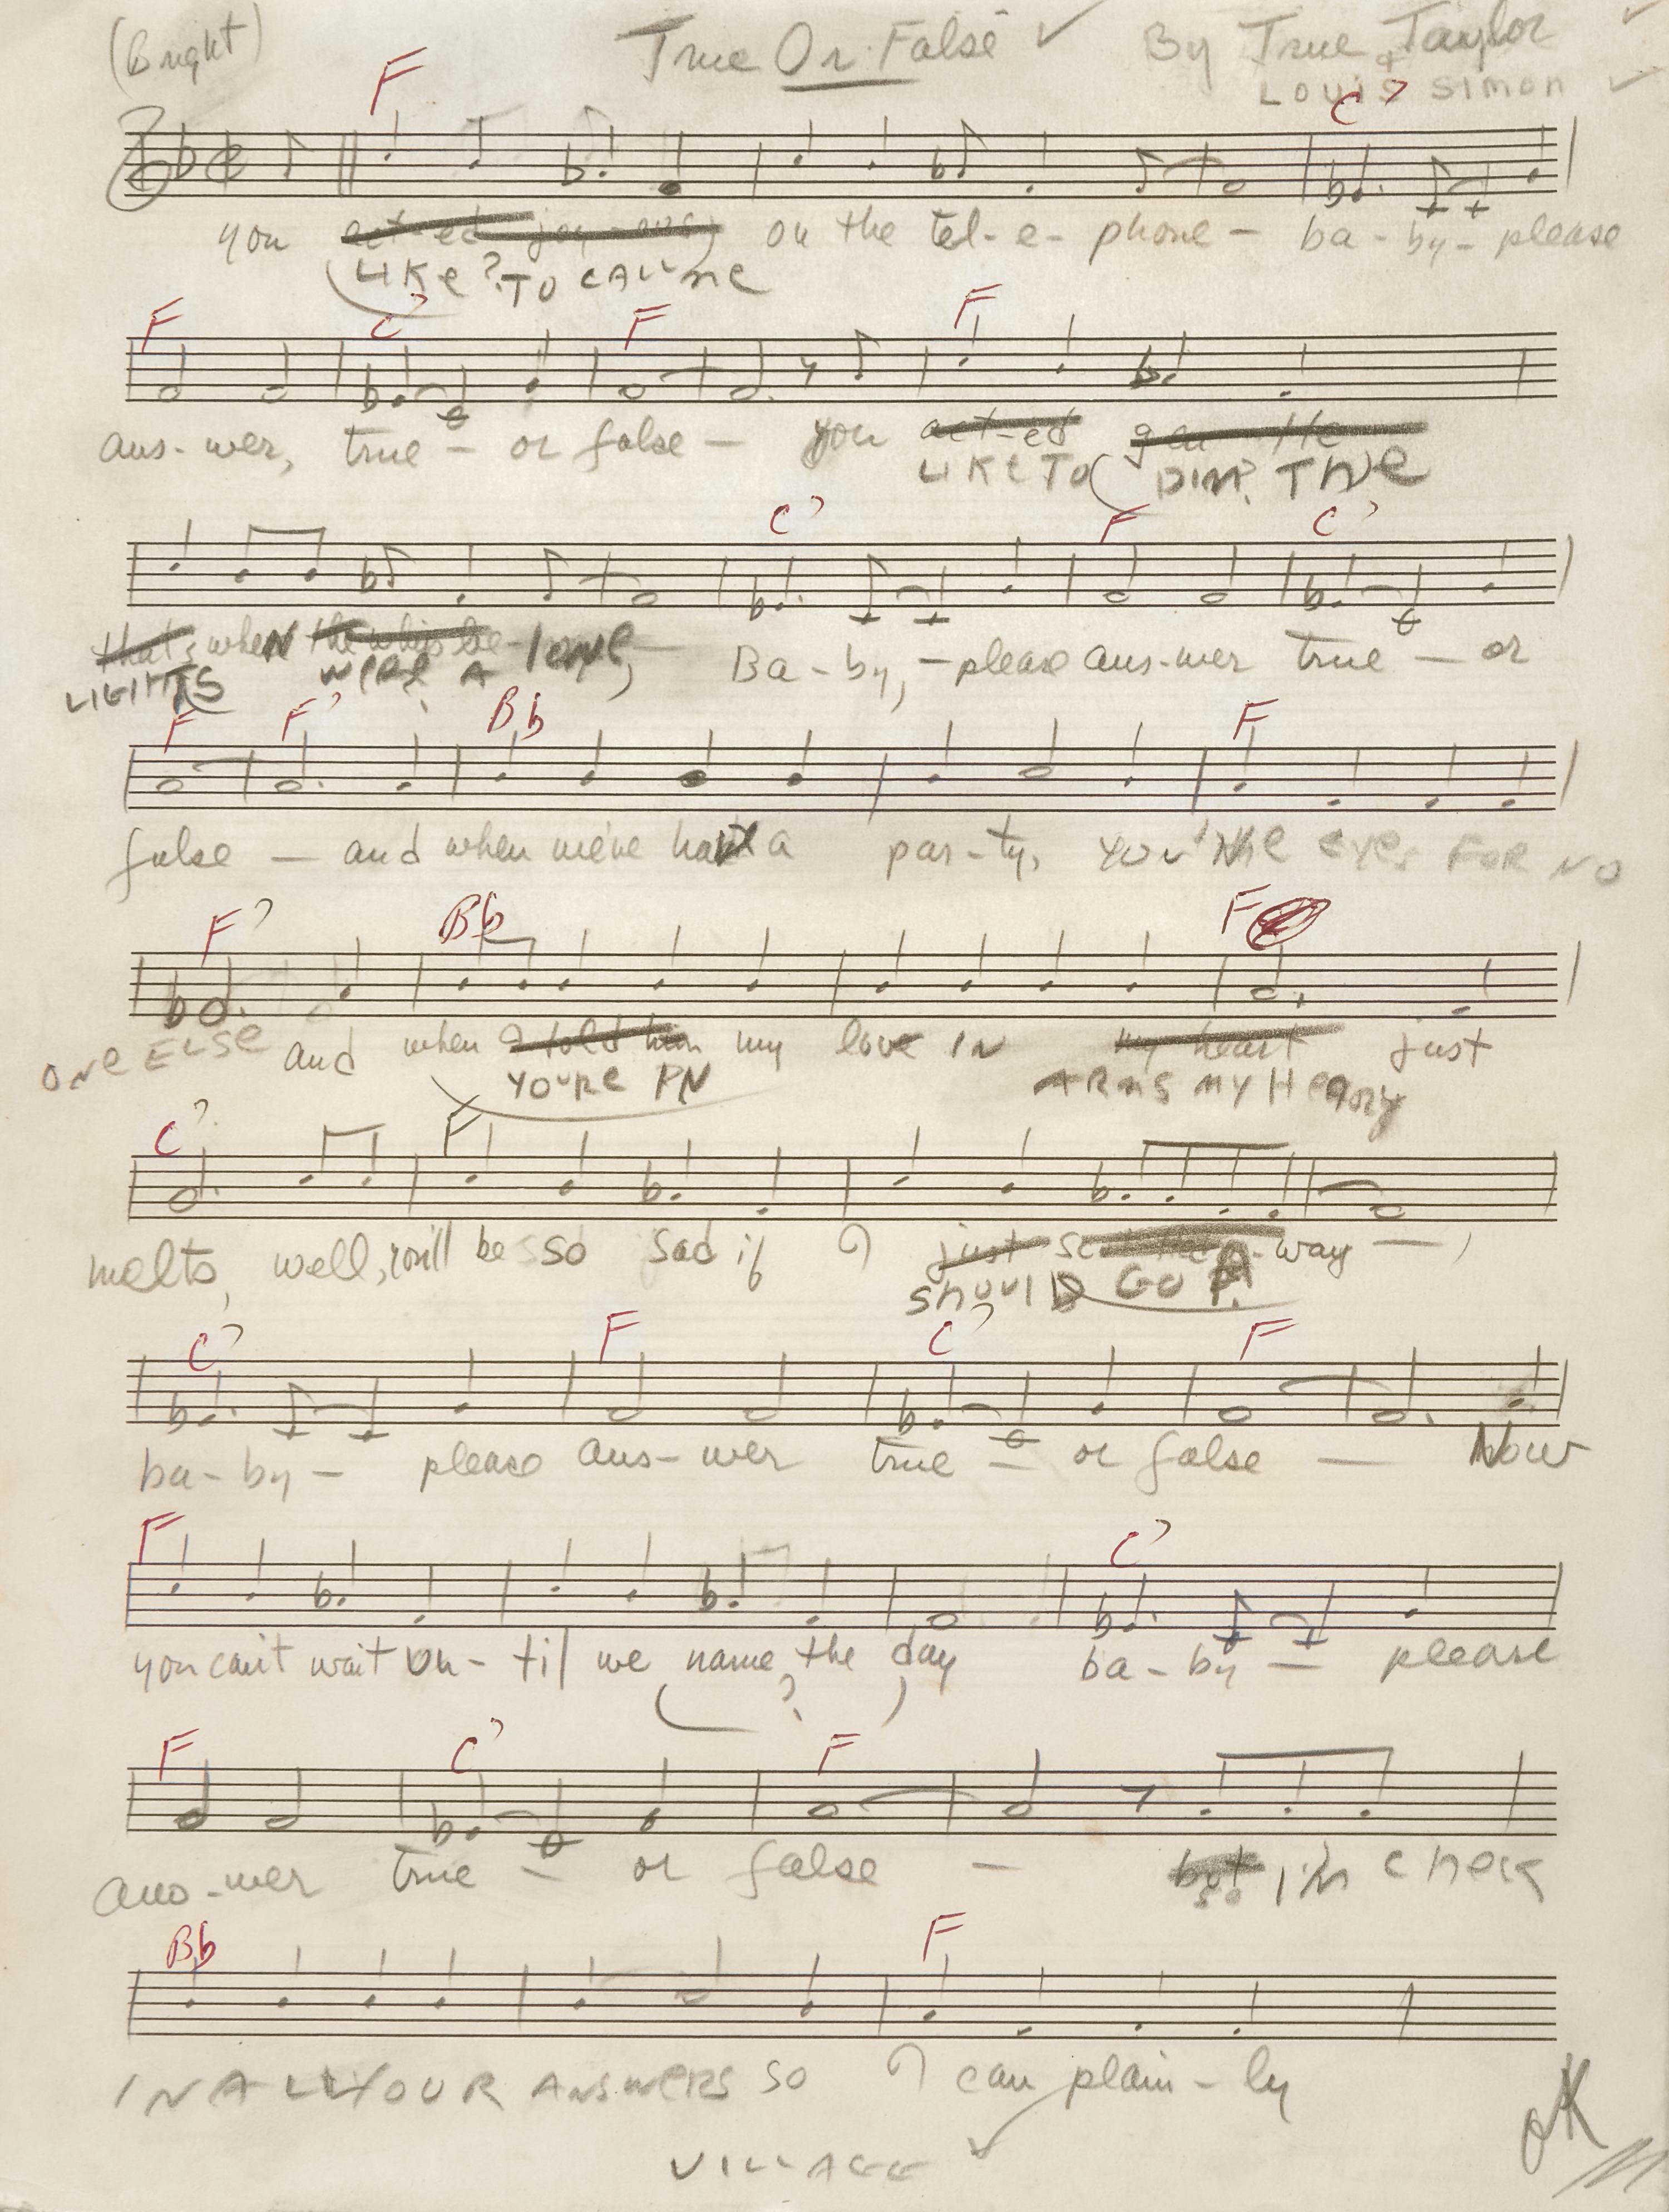 (Bright) True Or False ✓ By True Taylor ✓
& Louis Simon ✓
F C7
you act-ed joy-ous, on the tel-e-phone - ba-by- please
LIKE? TO CALL ME
F C7 F F
ans-wer, true - or false - you act-ed gen-tle
LIKE TO DIM? THE
C7 F C7
that's when the whis be-lone, - Ba-by, - please ans-wer true - or
LIGHTS WERE A
F F7 Bb F
false - and when we've had a par-ty, YOU'VE EYES FOR NO
F7 Bb F
ONE ELSE and when I told him my love IN my heart just
YOU'RE IN ARMS MY HEART
C7 F
melts, well, you'll be so sad if I just -way -,
SHOULD GO A
C7 F C7 F
ba-by- please ans-wer true - or false - Now
F C7
you can't wait un-til we name the day ba-by - please
?
F C7 F
ans-wer true - or false - but I'M CHECK
so
Bb F
IN ALL YOUR ANSWERS SO I can plain-ly
VILLAGE ✓
OK